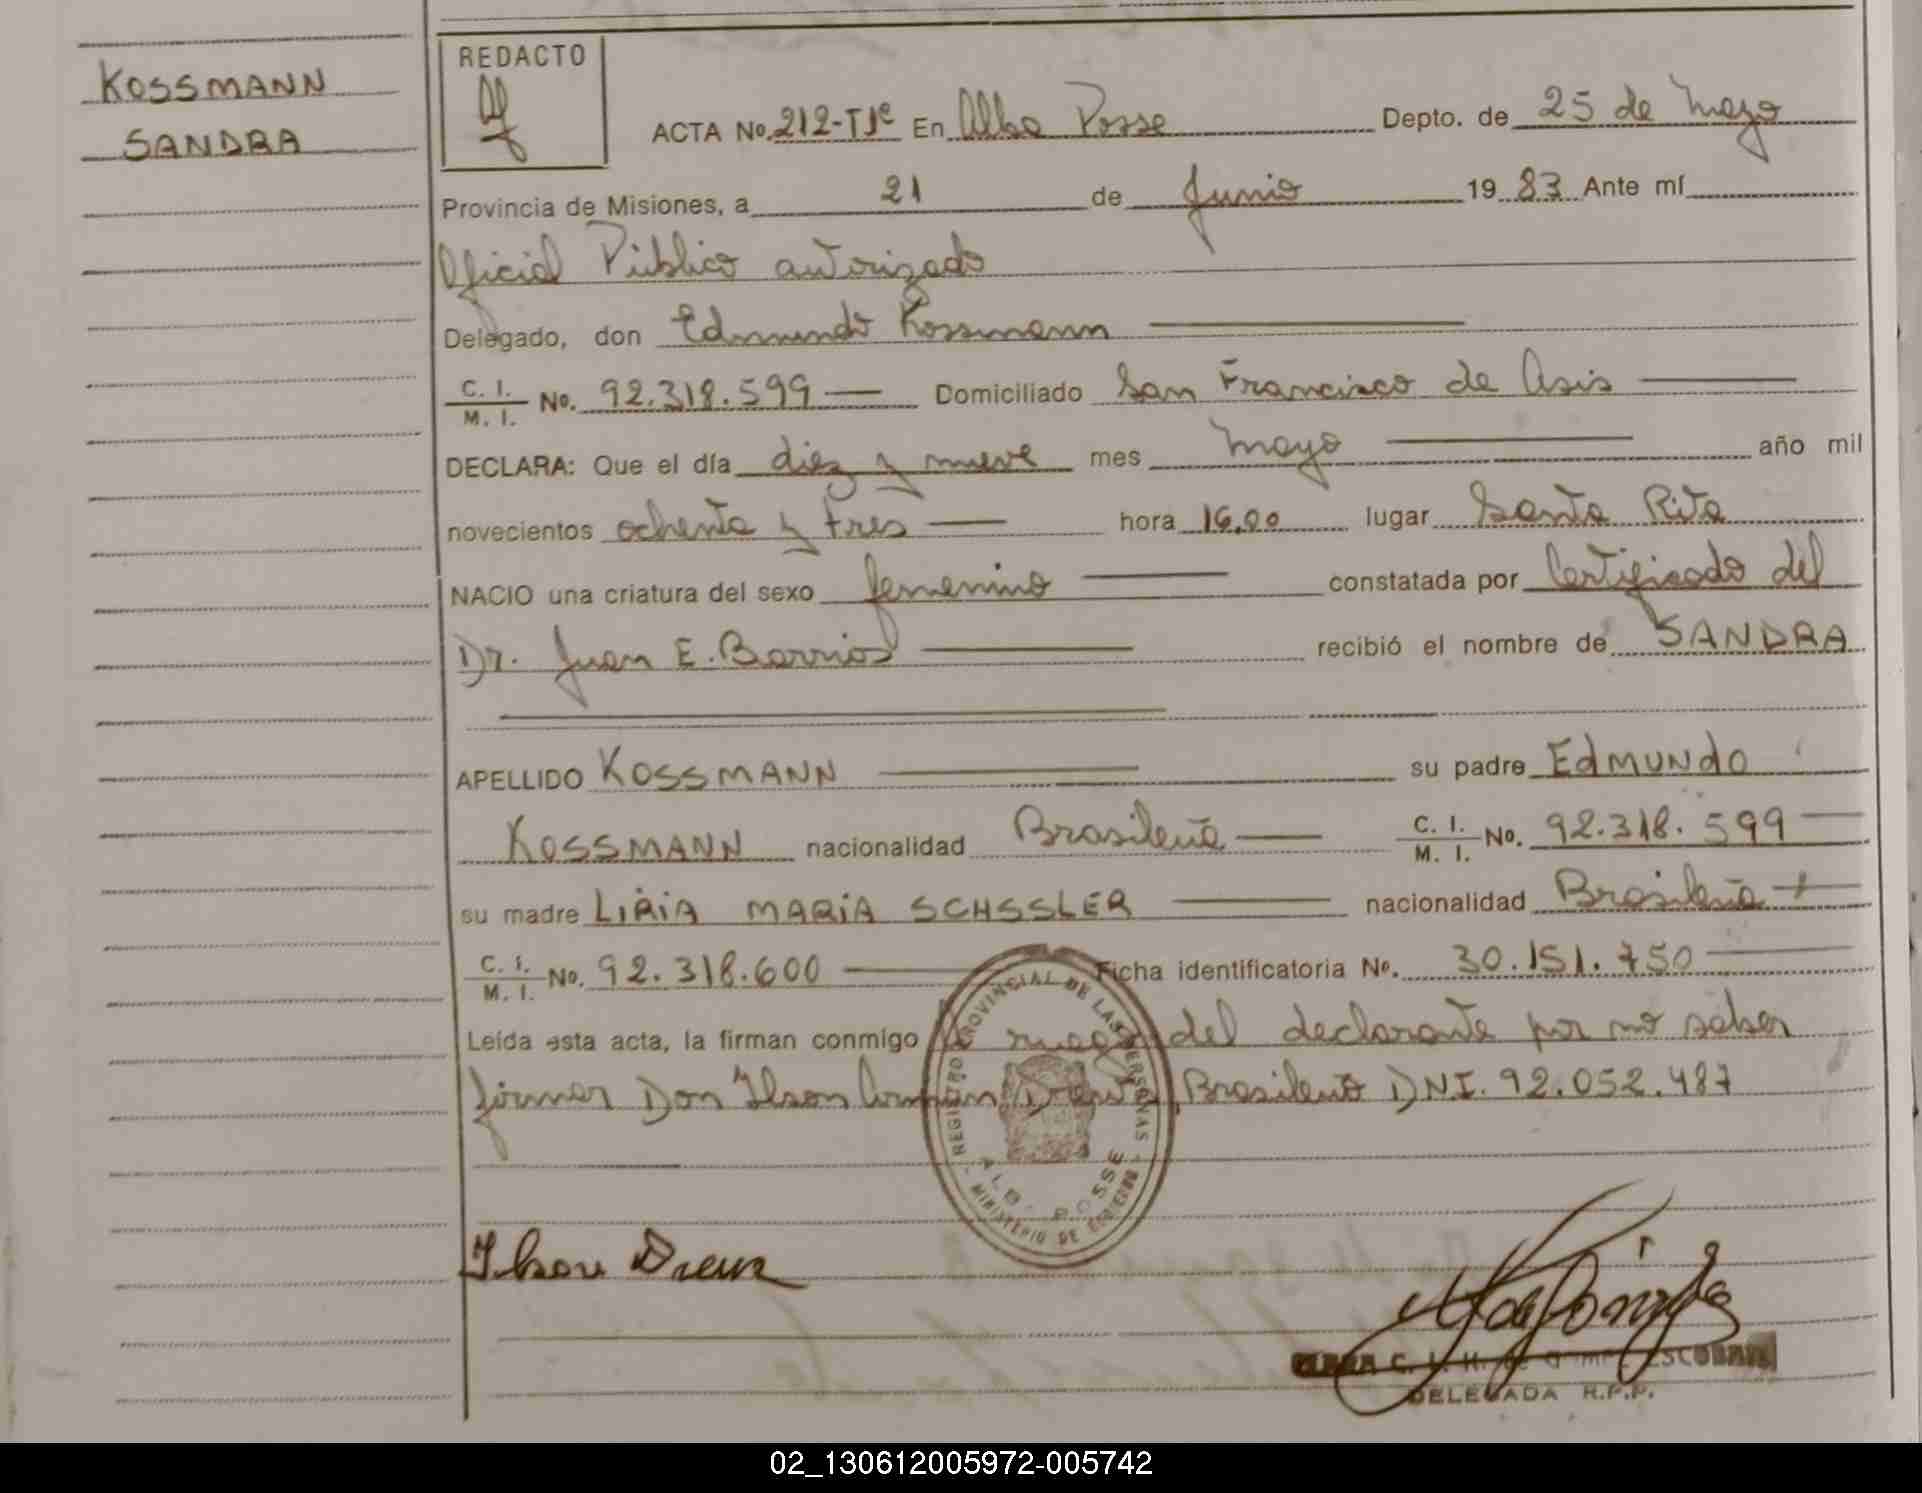 KOSSMANN
SANDRA
REDACTO
ACTA No. 212-TIº En Alba Posse Depto. de 25 de Mayo
Provincia de Misiones, a 21 de Junio 19 83 Ante mí
Oficial Público autorizado
Delegado, don Edmundo Kossmann
C. I. / M. I. No. 92.318.599 — Domiciliado San Francisco de Asis
DECLARA: Que el día diez y nueve mes mayo año mil
novecientos ochenta y tres — hora 16,00 lugar Santa Rita
NACIO una criatura del sexo femenino constatada por Certificado del
Dr. Juan E. Barrios recibió el nombre de SANDRA
APELLIDO KOSSMANN su padre EdMUNdO
KOSSMANN nacionalidad Brasileña — C. I. / M. I. No. 92.318.599
su madre LIRIA MARIA SCHSSLER nacionalidad Brasileña
C. I. / M. I. No. 92.318.600 — Ficha identificatoria No. 30.151.750
Leída esta acta, la firman conmigo a ruego del declarante por no saber
firmar Don Ilson Brasileño DNI. 92.052.487
REGISTRO PROVINCIAL DE LAS PERSONAS
ALB. POSSE
MINISTERIO DE GOBIERNO
Ilson
C. I. H. de ESCOBAR
DELEGADA R.P.P.
02_130612005972-005742